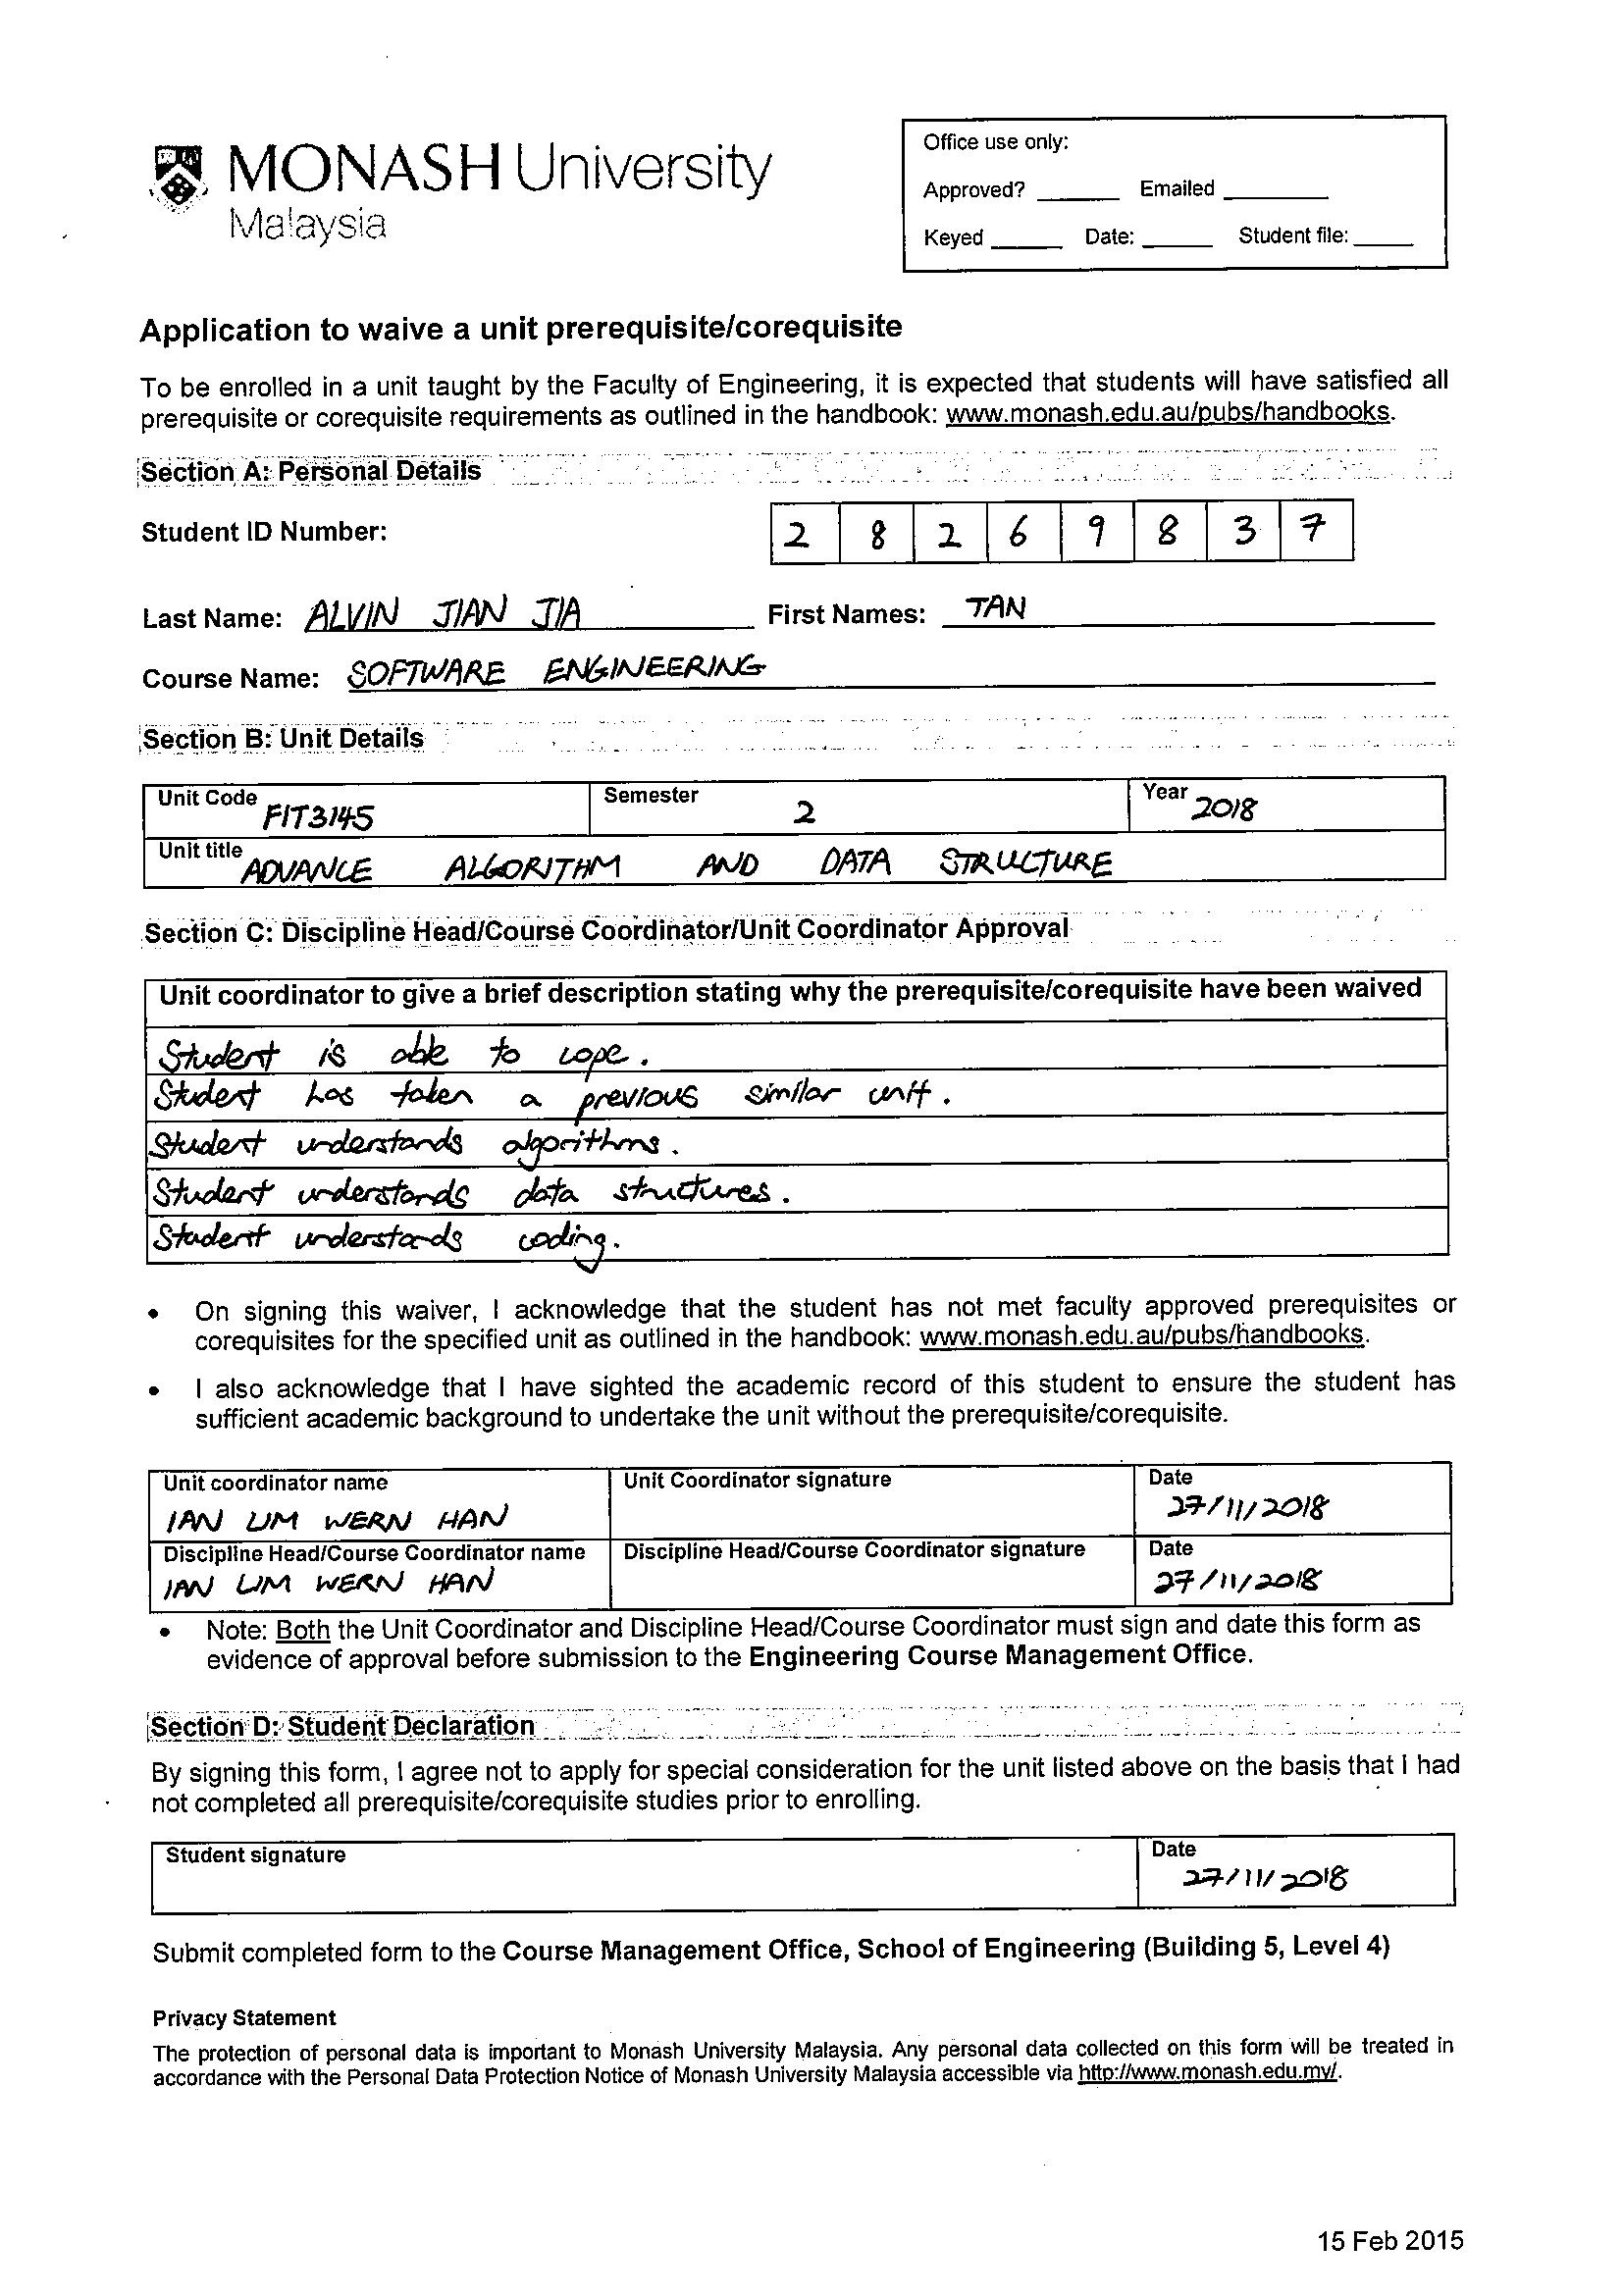 MONASH University
Malaysia
Office use only:
Approved? ______ Emailed ________
Keyed _____ Date: _____ Student file: _____
Application to waive a unit prerequisite/corequisite
To be enrolled in a unit taught by the Faculty of Engineering, it is expected that students will have satisfied all
prerequisite or corequisite requirements as outlined in the handbook: www.monash.edu.au/pubs/handbooks.
Section A: Personal Details
Student ID Number: 2 8 2 6 9 8 3 7
Last Name: ALVIN JIAN JIA First Names: TAN
Course Name: SOFTWARE ENGINEERING
Section B: Unit Details
Unit Code FIT3145 Semester 2 Year 2018
Unit title ADVANCE ALGORITHM AND DATA STRUCTURE
Section C: Discipline Head/Course Coordinator/Unit Coordinator Approval
Unit coordinator to give a brief description stating why the prerequisite/corequisite have been waived
Student is able to cope.
Student has taken a previous similar unit.
Student understands algorithms.
Student understands data structures.
Student understands coding.
• On signing this waiver, I acknowledge that the student has not met faculty approved prerequisites or
corequisites for the specified unit as outlined in the handbook: www.monash.edu.au/pubs/handbooks.
• I also acknowledge that I have sighted the academic record of this student to ensure the student has
sufficient academic background to undertake the unit without the prerequisite/corequisite.
Unit coordinator name Unit Coordinator signature Date
IAN LIM WERN HAN 27/11/2018
Discipline Head/Course Coordinator name Discipline Head/Course Coordinator signature Date
IAN LIM WERN HAN 27/11/2018
• Note: Both the Unit Coordinator and Discipline Head/Course Coordinator must sign and date this form as
evidence of approval before submission to the Engineering Course Management Office.
Section D: Student Declaration
By signing this form, I agree not to apply for special consideration for the unit listed above on the basis that I had
not completed all prerequisite/corequisite studies prior to enrolling.
Student signature Date
27/11/2018
Submit completed form to the Course Management Office, School of Engineering (Building 5, Level 4)
Privacy Statement
The protection of personal data is important to Monash University Malaysia. Any personal data collected on this form will be treated in
accordance with the Personal Data Protection Notice of Monash University Malaysia accessible via http://www.monash.edu.my/.
15 Feb 2015